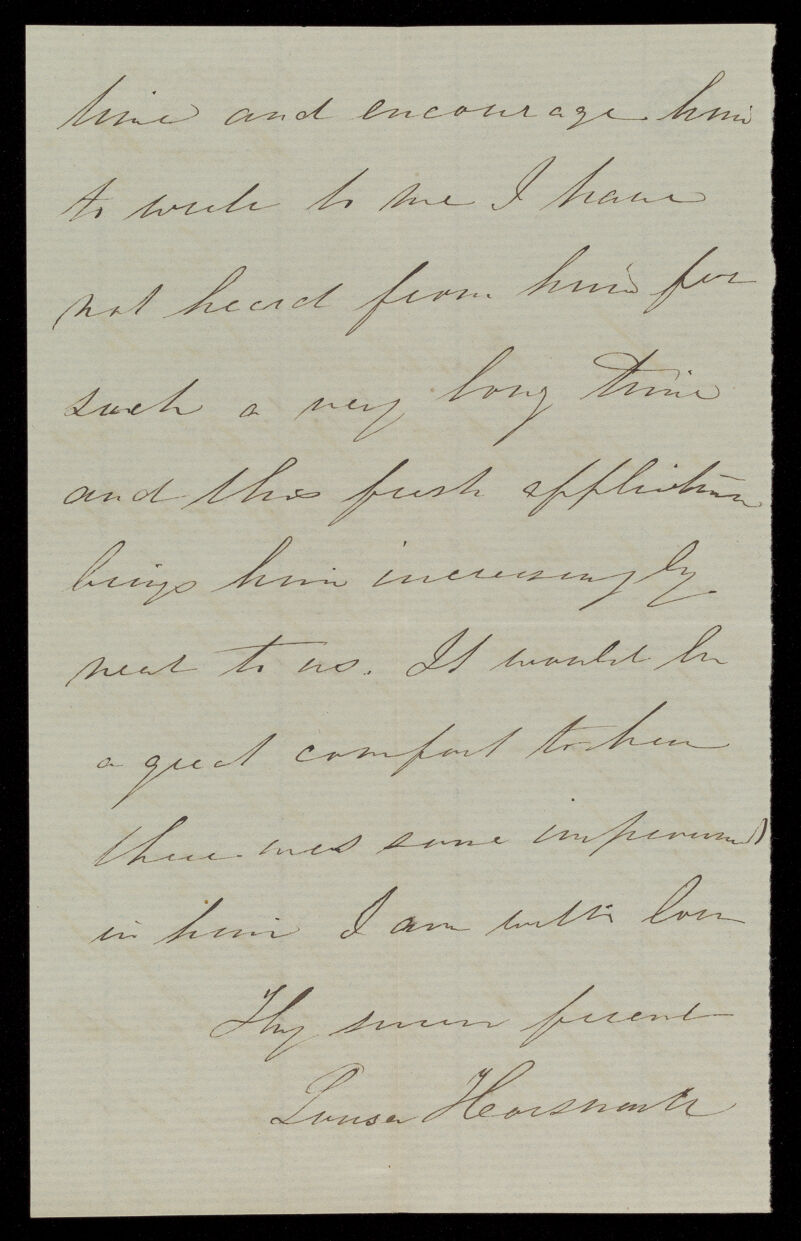 time and encourage him
to write to me I have
not heard from him for
such a very long time
and this fresh affliction
brings him increasingly
near to us. It would be
a great comfort to hear
there was some improvement
in him I am with love
Thy sincere friend
Louisa